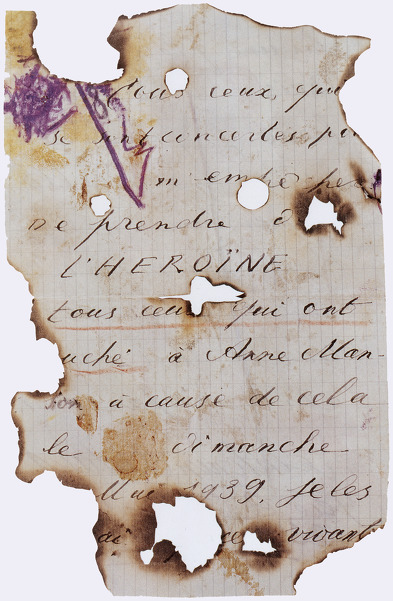 Tous ceux, qui
se sont concertés po
m'empê
de prendre
L'HEROÏNE
tous ceux qui ont
uché à Anne Man-
son à cause de cela
le dimanche
Mai 1939, je les
ai vivant